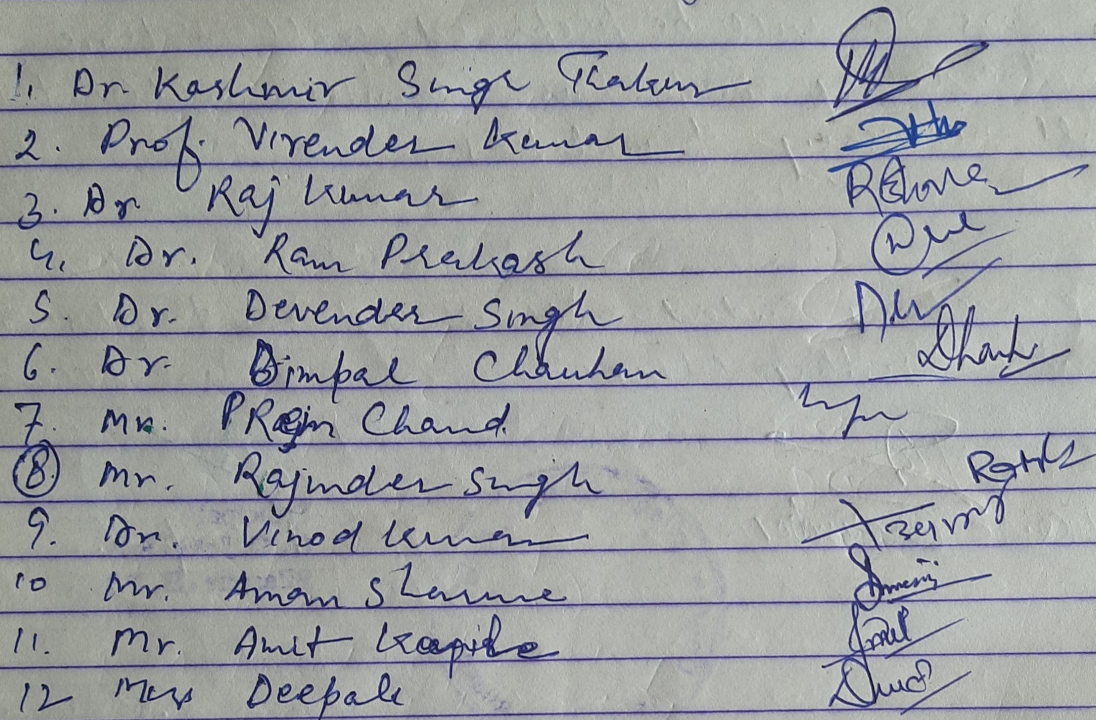 1. Dr. Kashmir Singh Thakur
2. Prof. Virender Kumar
3. Dr. Raj Kumar
4. Dr. Ram Prakash
5. Dr. Devender Singh
6. Dr. Dimpal Chauhan
7. Mr. Prem Chand
8. Mr. Rajinder Singh
9. Dr. Vinod Kumar
10 Mr. Aman Sharma
11. Mr. Amit
12 Deepak